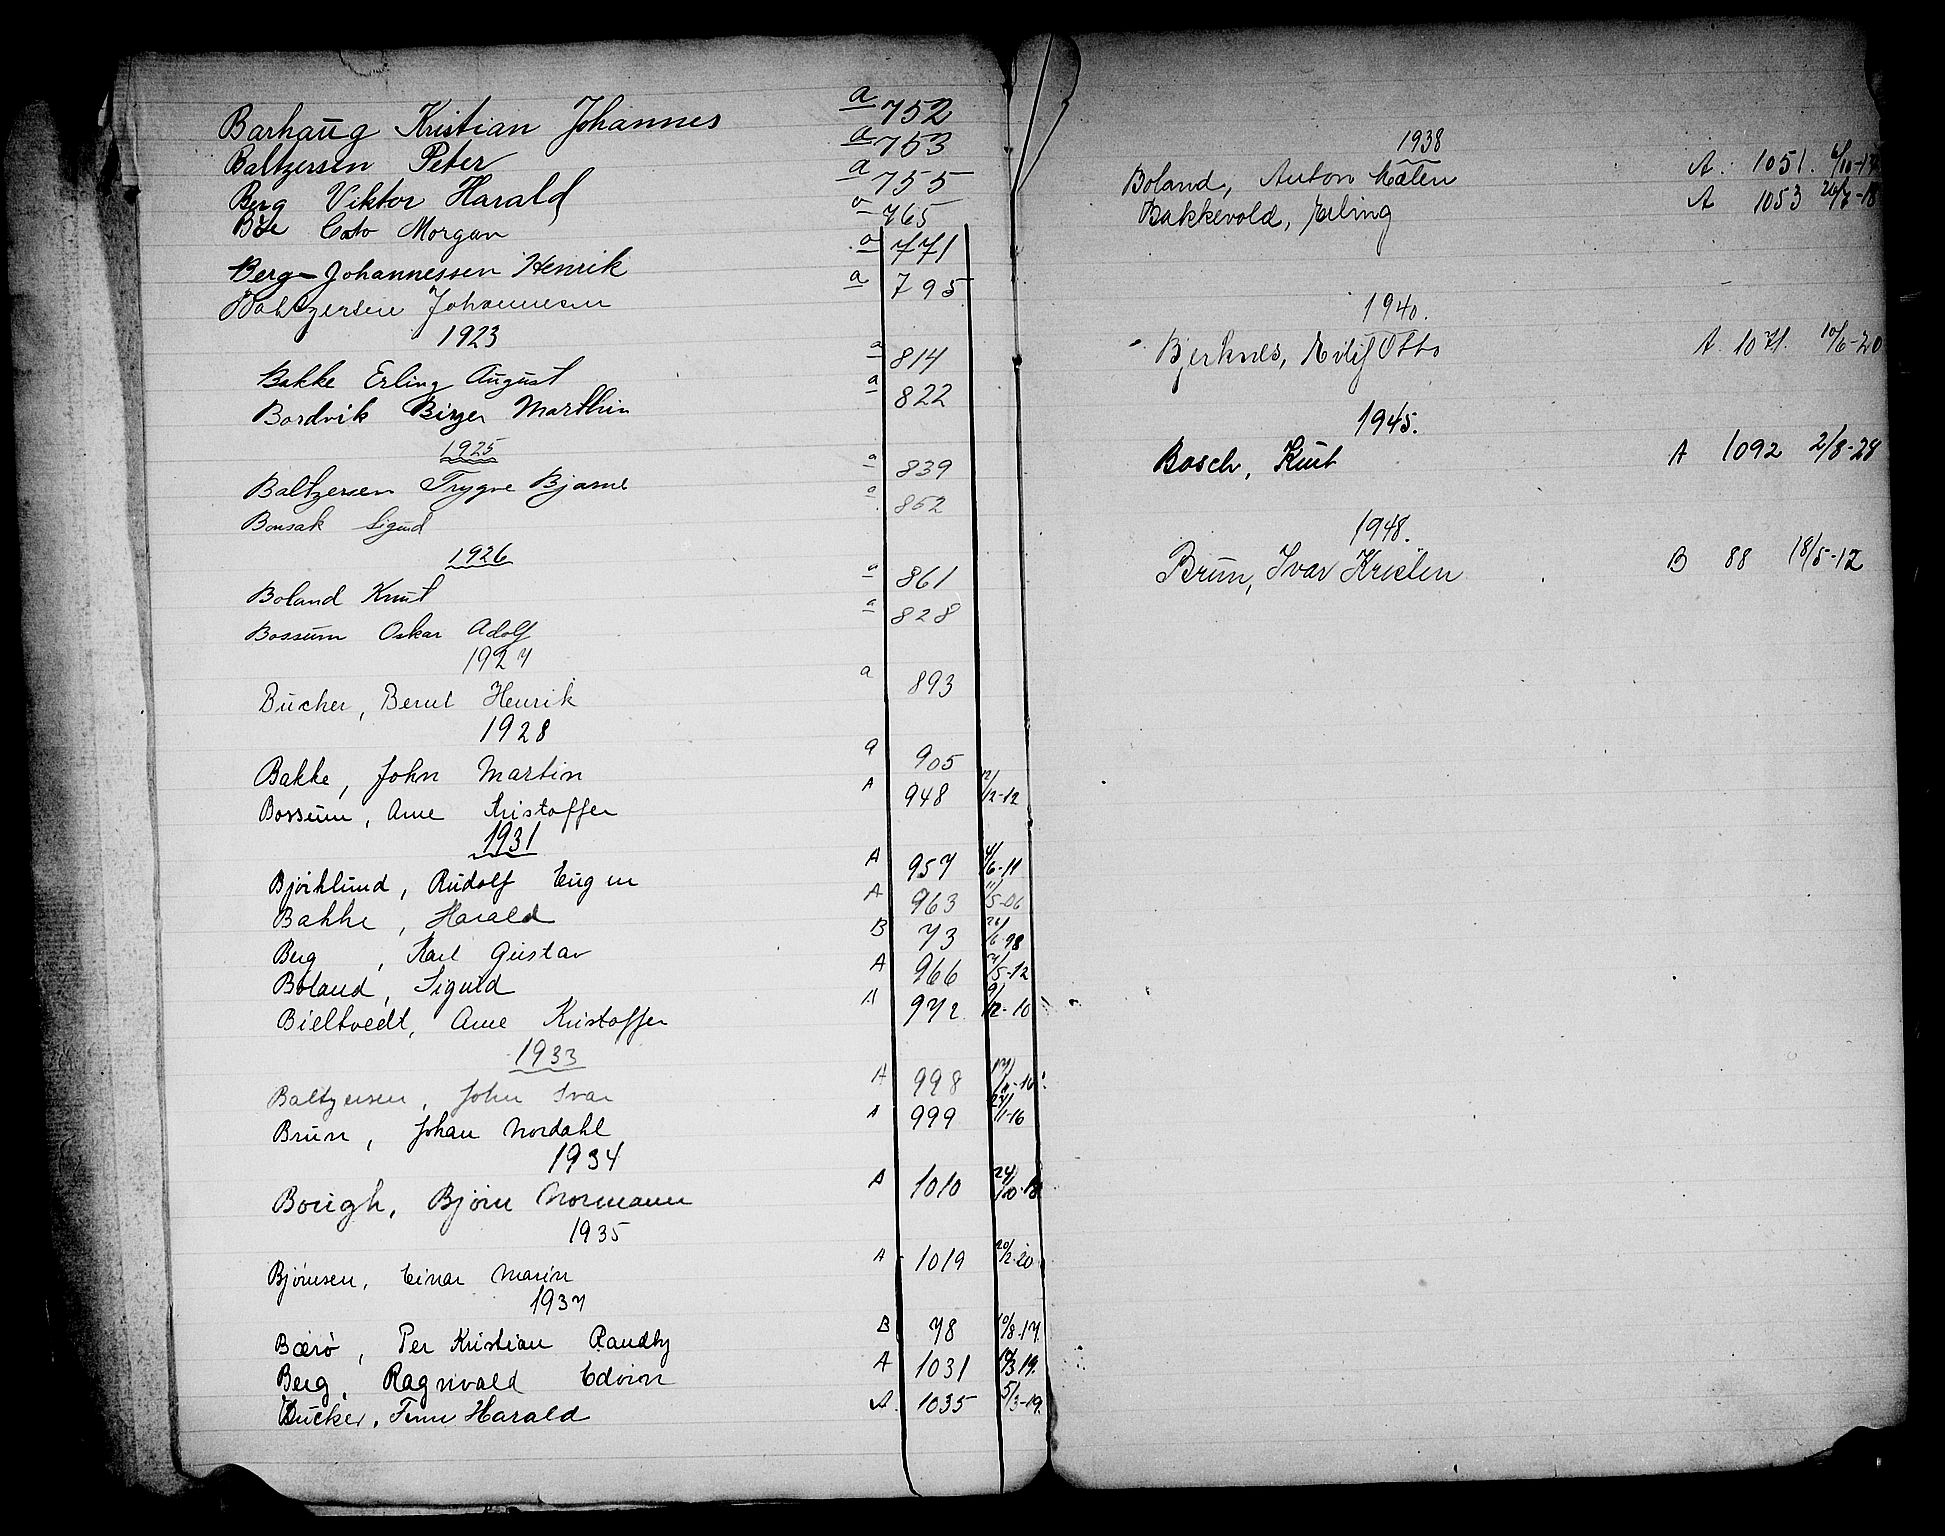 Barhaug Kristian Johannes a 752
Baltzersen Peter a 753
Berg Viktor Harald a 755
Bøe Cato Morgan a 765
Berg-Johannessen Henrik a 771
Baltzersen Johannesen a 795
1923
Bakke Erling August a 814
Bordvik Birger Marthin a 822
1925
Baltzersen Trygve Bjarne a 839
Bonsak Sigurd a 852
1926
Boland Knut a 861
Bossum Oskar Adolf a 828
1927
Bucher, Bernt Henrik a 893
1928
Bakke, John Martin a 905
Bossum, Arne Kristoffer A 948 12/12-12
1931
Bjørklund, Rudolf Eugen A 957 4/6-11
Bakke, Harald A 963 11/5-06
Berg, Karl Gustav B 73 26/6-98
Boland, Sigurd A 966 21/5-12
Bieltvedt, Arne Kristoffer A 972 9/12-10
1933
Baltzersen, John Ivar A 998
Brun, Johan Nordahl A 999 27/1-16
1934
Bough, Bjørn Normann A 1010 24/10-18
1935
Bjørnsen, Einar Marin A 1019 20/2-20
1937
Bærø, Per Kristian Randby B 78 10/8-17
Berg, Ragnvald Edvin A 1031 10/3 19.
Bucker, Finn Harald A 1035 5/3-19.
1938
Boland, Anton Malen A. 1051.
Bakkevold, Erling A 1053 26/7-18
1940.
Bjerknes, Eilif Otto A 1071. 10/6-20
1945.
Bosch, Knut A 1092 2/8-28
1948.
Brun, Ivar Kristen B 88 18/5-12